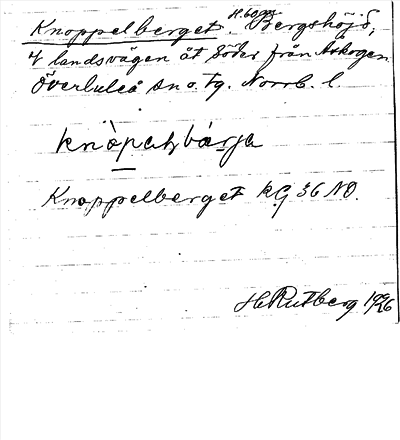 Knoppelberget. H. 60 m. Bergshöjd,
landsvägen åt söder från Askogen
Överluleå sn o. tg. Norrb. l.
Knoppelberget kG 36 NO.
H Rutberg 1926